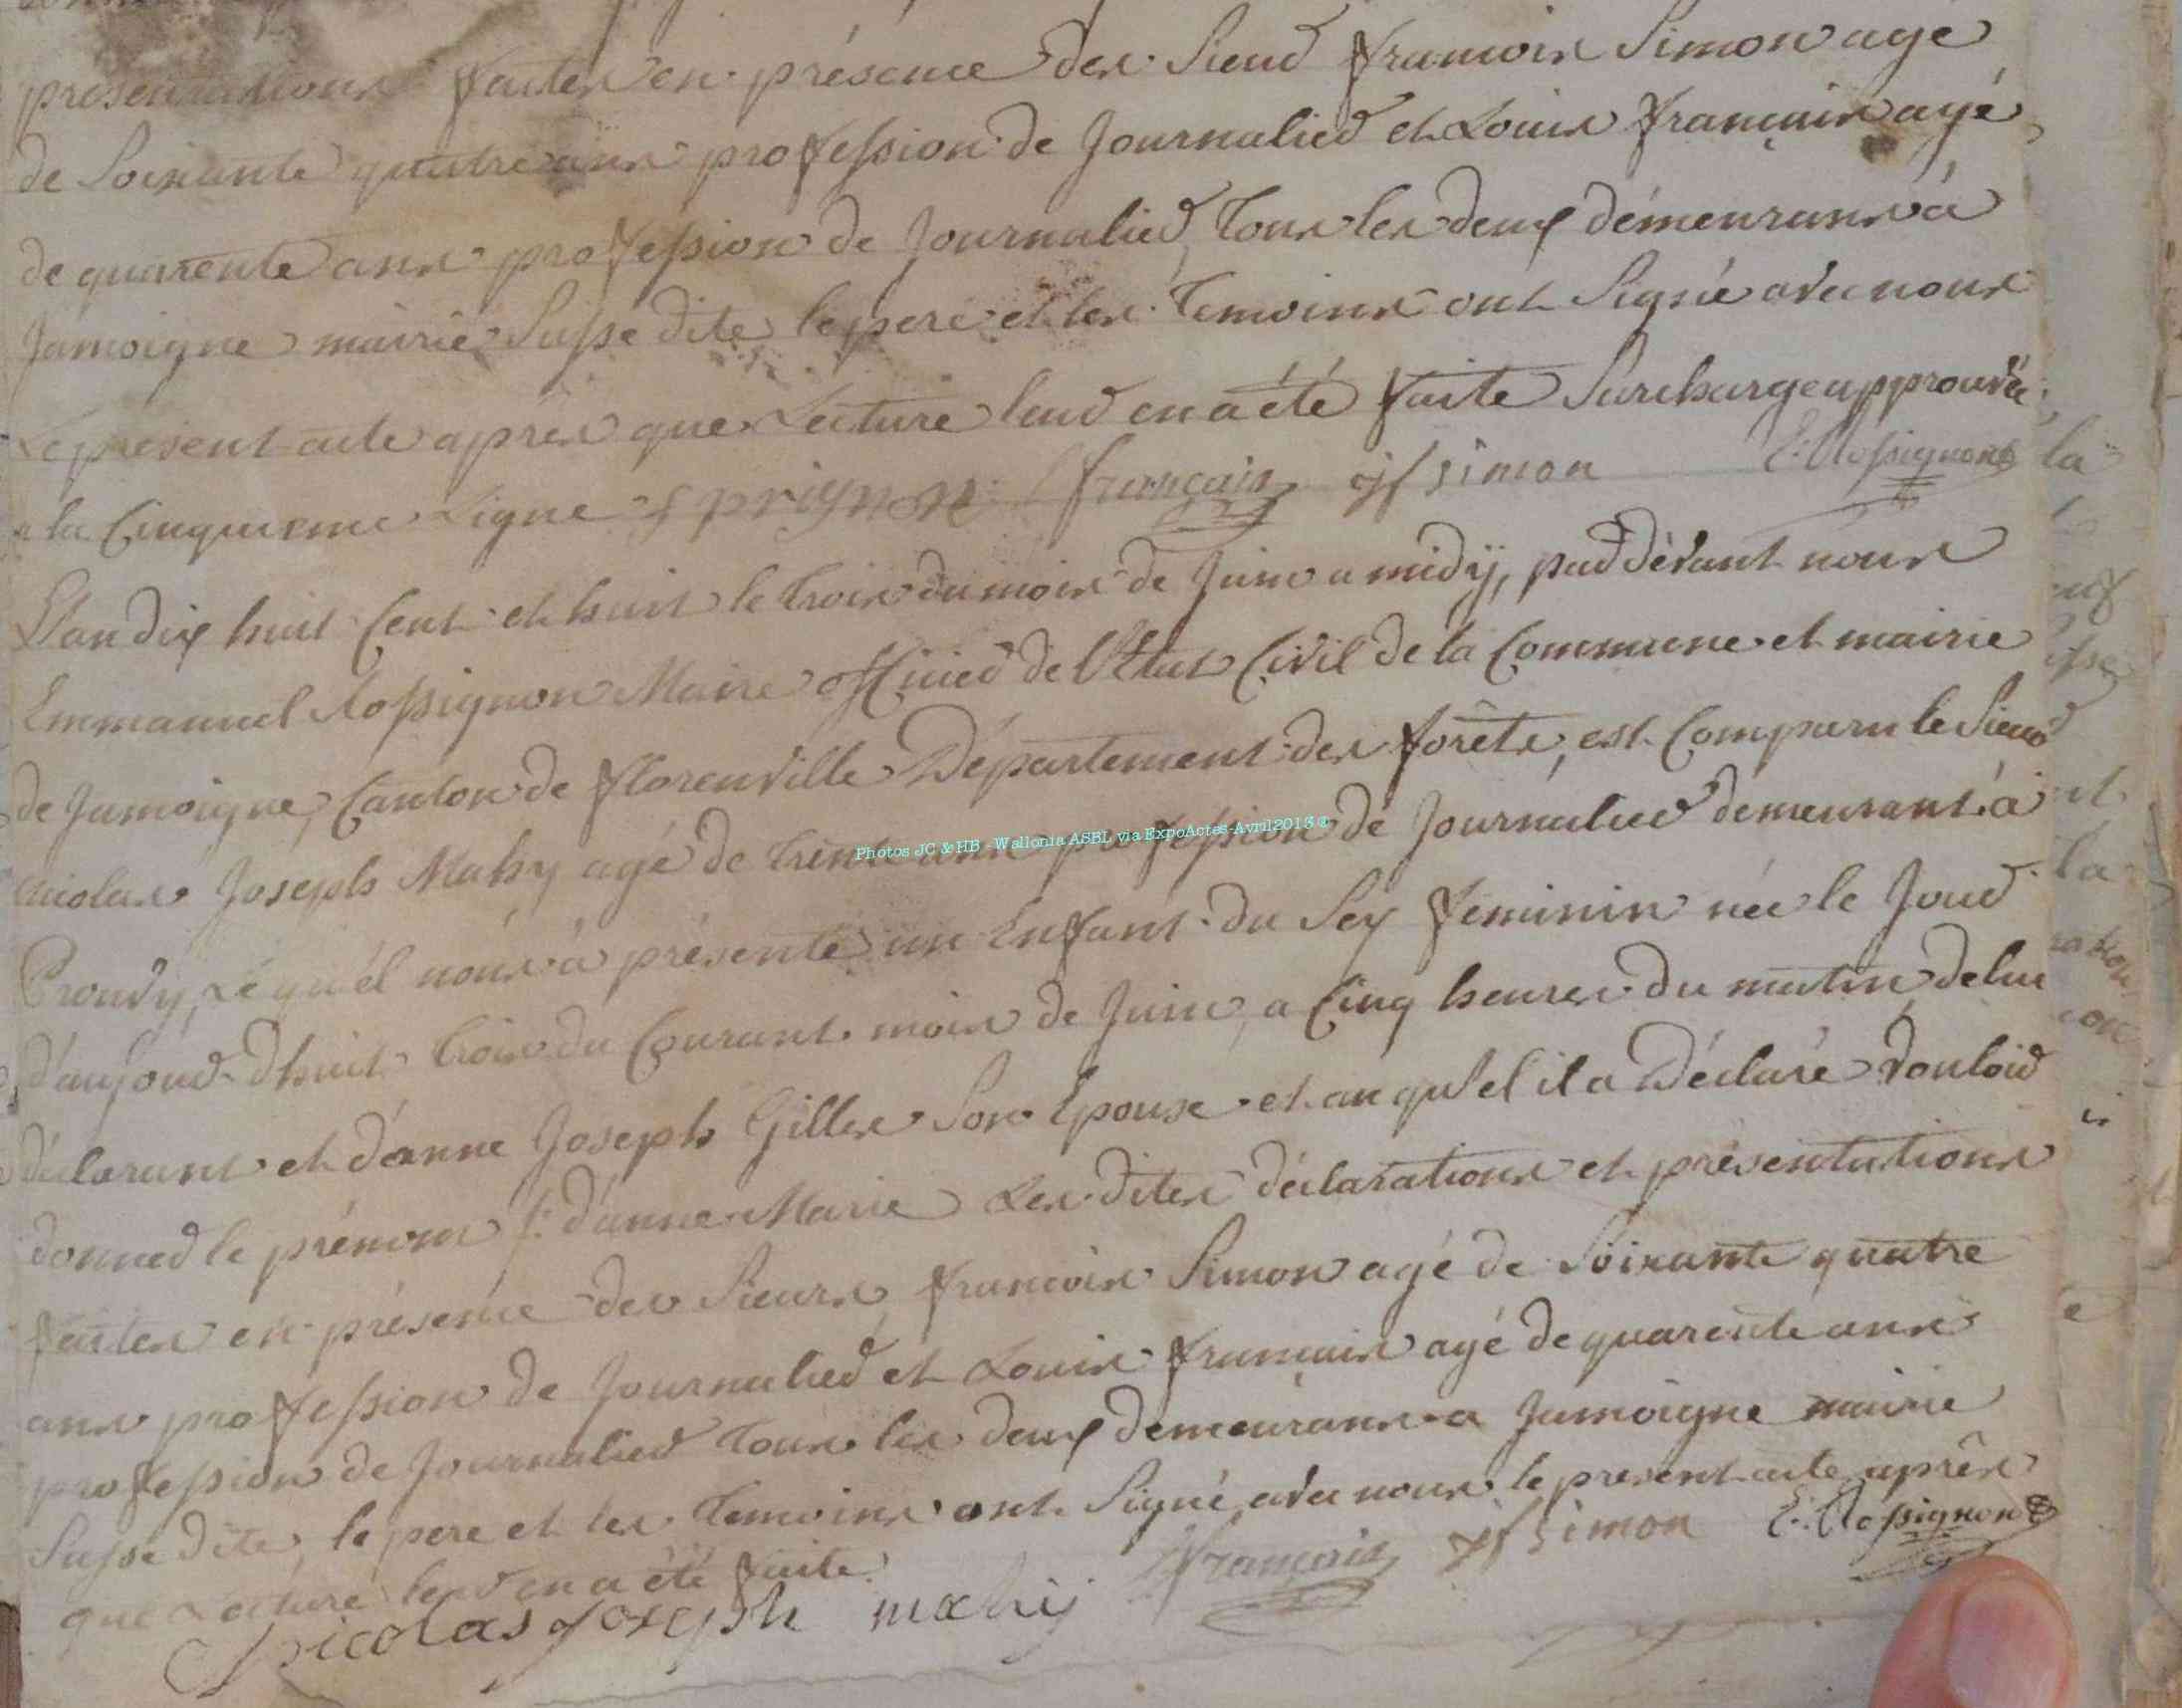 présentations faites en présence des Sieur francois Simon agé
de Soixante quatre ans profession de Journalier et Louis françois agé
de quarente ans profession de Journalier, tous les deux démeurans à
Jamoigne mairie Susse dite le pere et les témoins ont Signé avec nous
Le present acte après que Lecture leur en a été faite Surcharge approuvée
a la Cinquieme Ligne prignon françois jf simon E: Rossignon
L'an dix huit Cent et huit le trois du mois de Juin a midÿ, par dévant nous
Emmanuel Rossignon Maire officier de l'Etat Civil de la Commune et mairie
de Jamoigne, Canton de florenville Département des forêts, est Comparu le Sieur
nicolas Joseph Mahy agé de trente ans profession de Journalier demeurant à
Photos JC & HB - Wallonia ASBL via ExpoActes-Avril2013 ©
Prouvy, Lequ'el nous à présenté un Enfant du Sex feminin née le Jour
d'aujour-d'huit trois du Courant mois de Juin, a Cinq heures du matin, de lui
déclarant et d'anne Joseph Gilles Son Epouse et au qu'el il a Déclaré vouloir
donner le prénom /: d'anne Marie Les dites déclarations et présentations
faites en présence des Sieurs francois Simon agé de Soixante quatre
ans profession de Journalier et Louis françois agé de quarente ans
profession de Journalier tous les deux demeurans a Jamoigne mairie
Susse dite, le pere et les témoins ont Signé avec nous le present acte après
que Lecture leur en a été faite. françois jf simon E: Rossignon
Nicolas joseph mahij